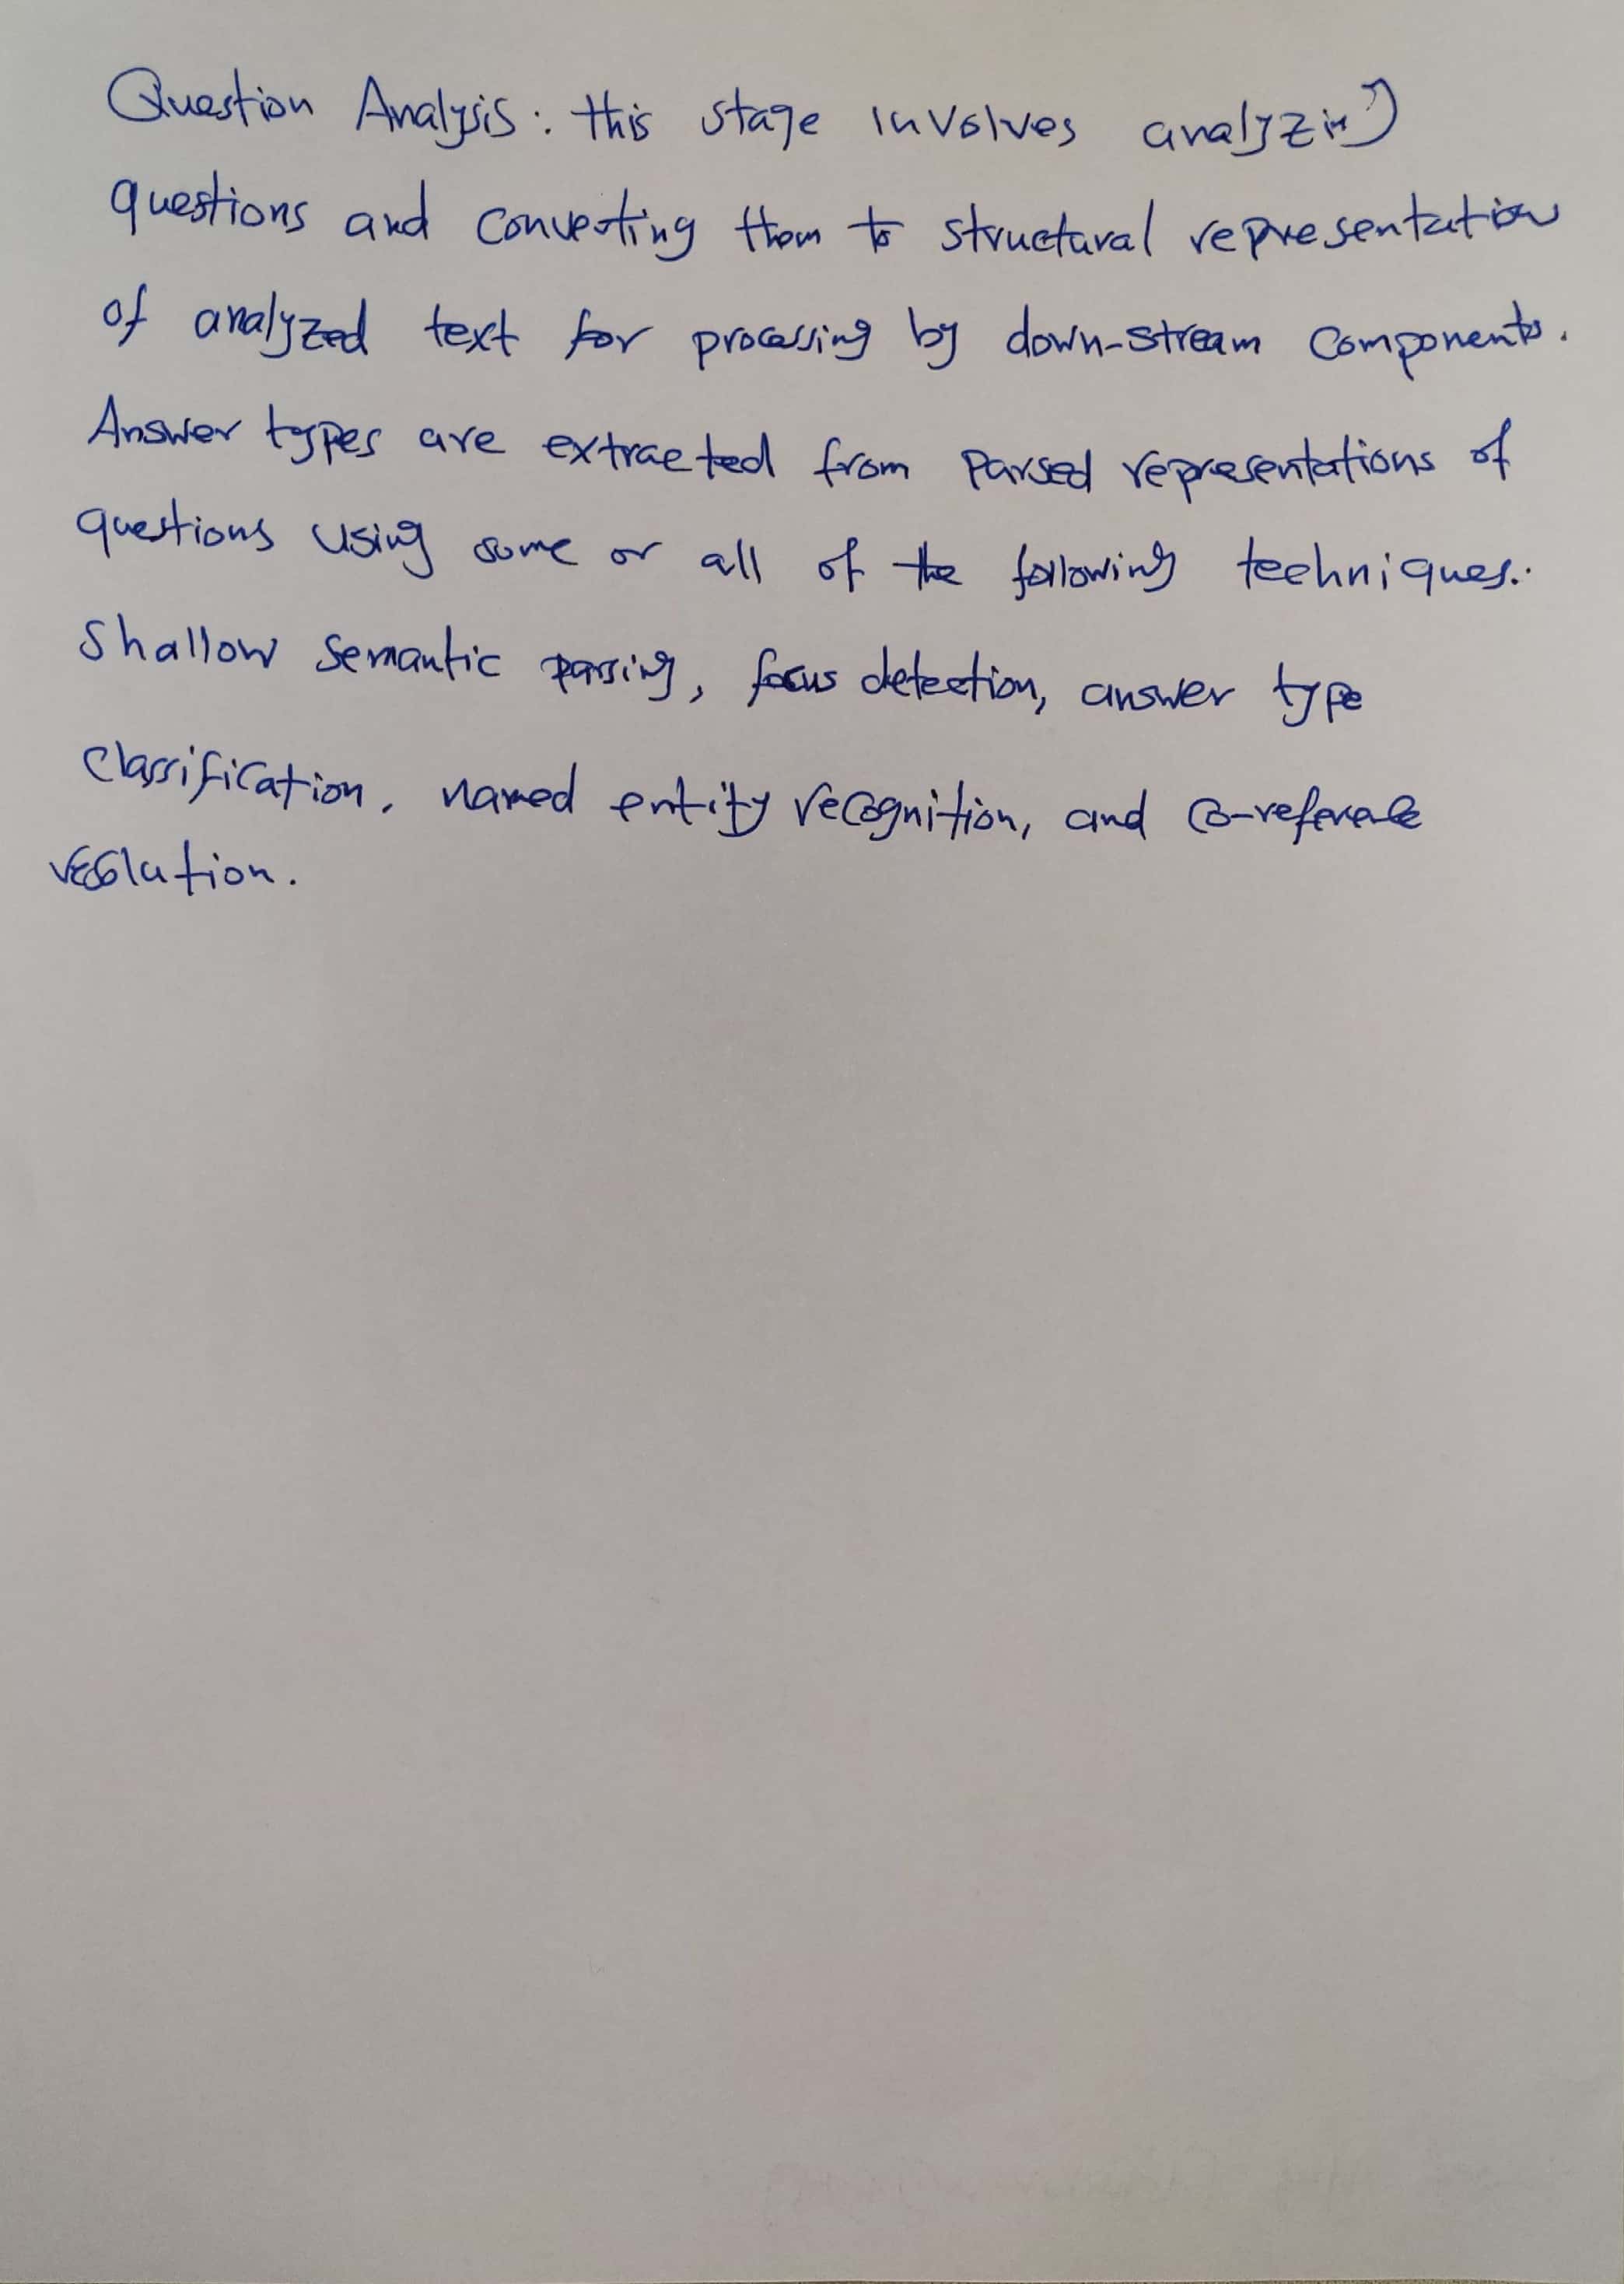 Question Analysis: this stage involves analyzing
questions and converting them to structural representation
of analyzed text for processing by down-stream components.
Answer types are extracted from parsed representations of
questions using some or all of the following techniques:
Shallow semantic parsing, focus detection, answer type
classification, named entity recognition, and co-reference
resolution.